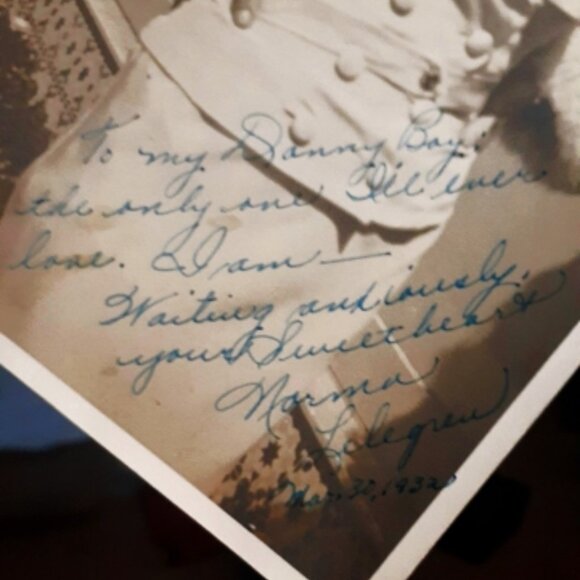 To my Danny Boy:
the only one I'll ever
love. I am —
Waiting anxiously,
your Sweetheart
Norma
Lilegren
Mar. 30, 1932